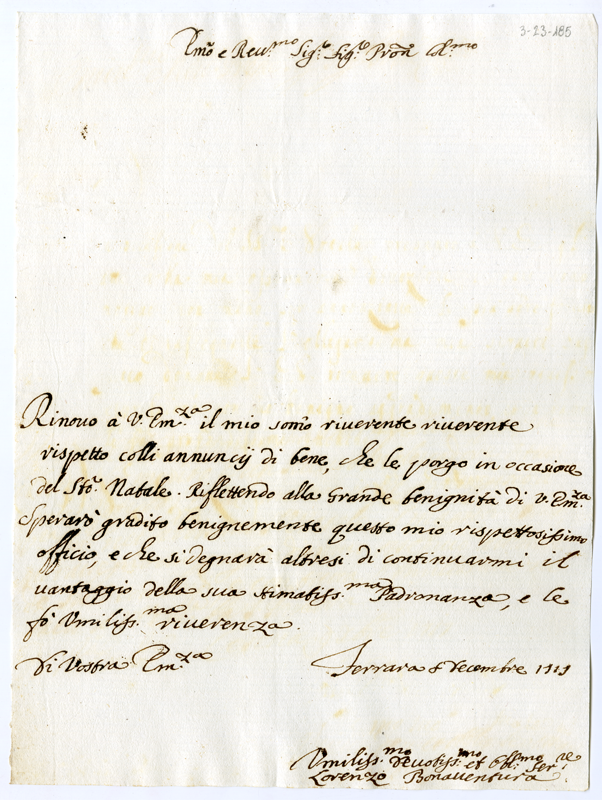 3-23-185
Em.o e Reu.mo Sig.r Sig.r Pron Col.mo
Rinouo à V. Em.za il mio som̃o riuerente riuerente
rispetto colli annuncij di bene, che le porgo in occasione
del Sto. Natale. Riflettendo alla Grande benignità di V. Em.za
Sperarò gradito benignemente questo mio rispettosissimo
officio, e che si degnarà altresi di continuarmi il
uantaggio della sua stimatiss.ma Padronanza, e le
fò Vmiliss.ma riuerenza.
Di Vostra Em.za
Ferrara 8 Decembre
Vmiliss.mo Deuotiss.mo et Obl.mo Ser.re
Lorenzo Bonauentura